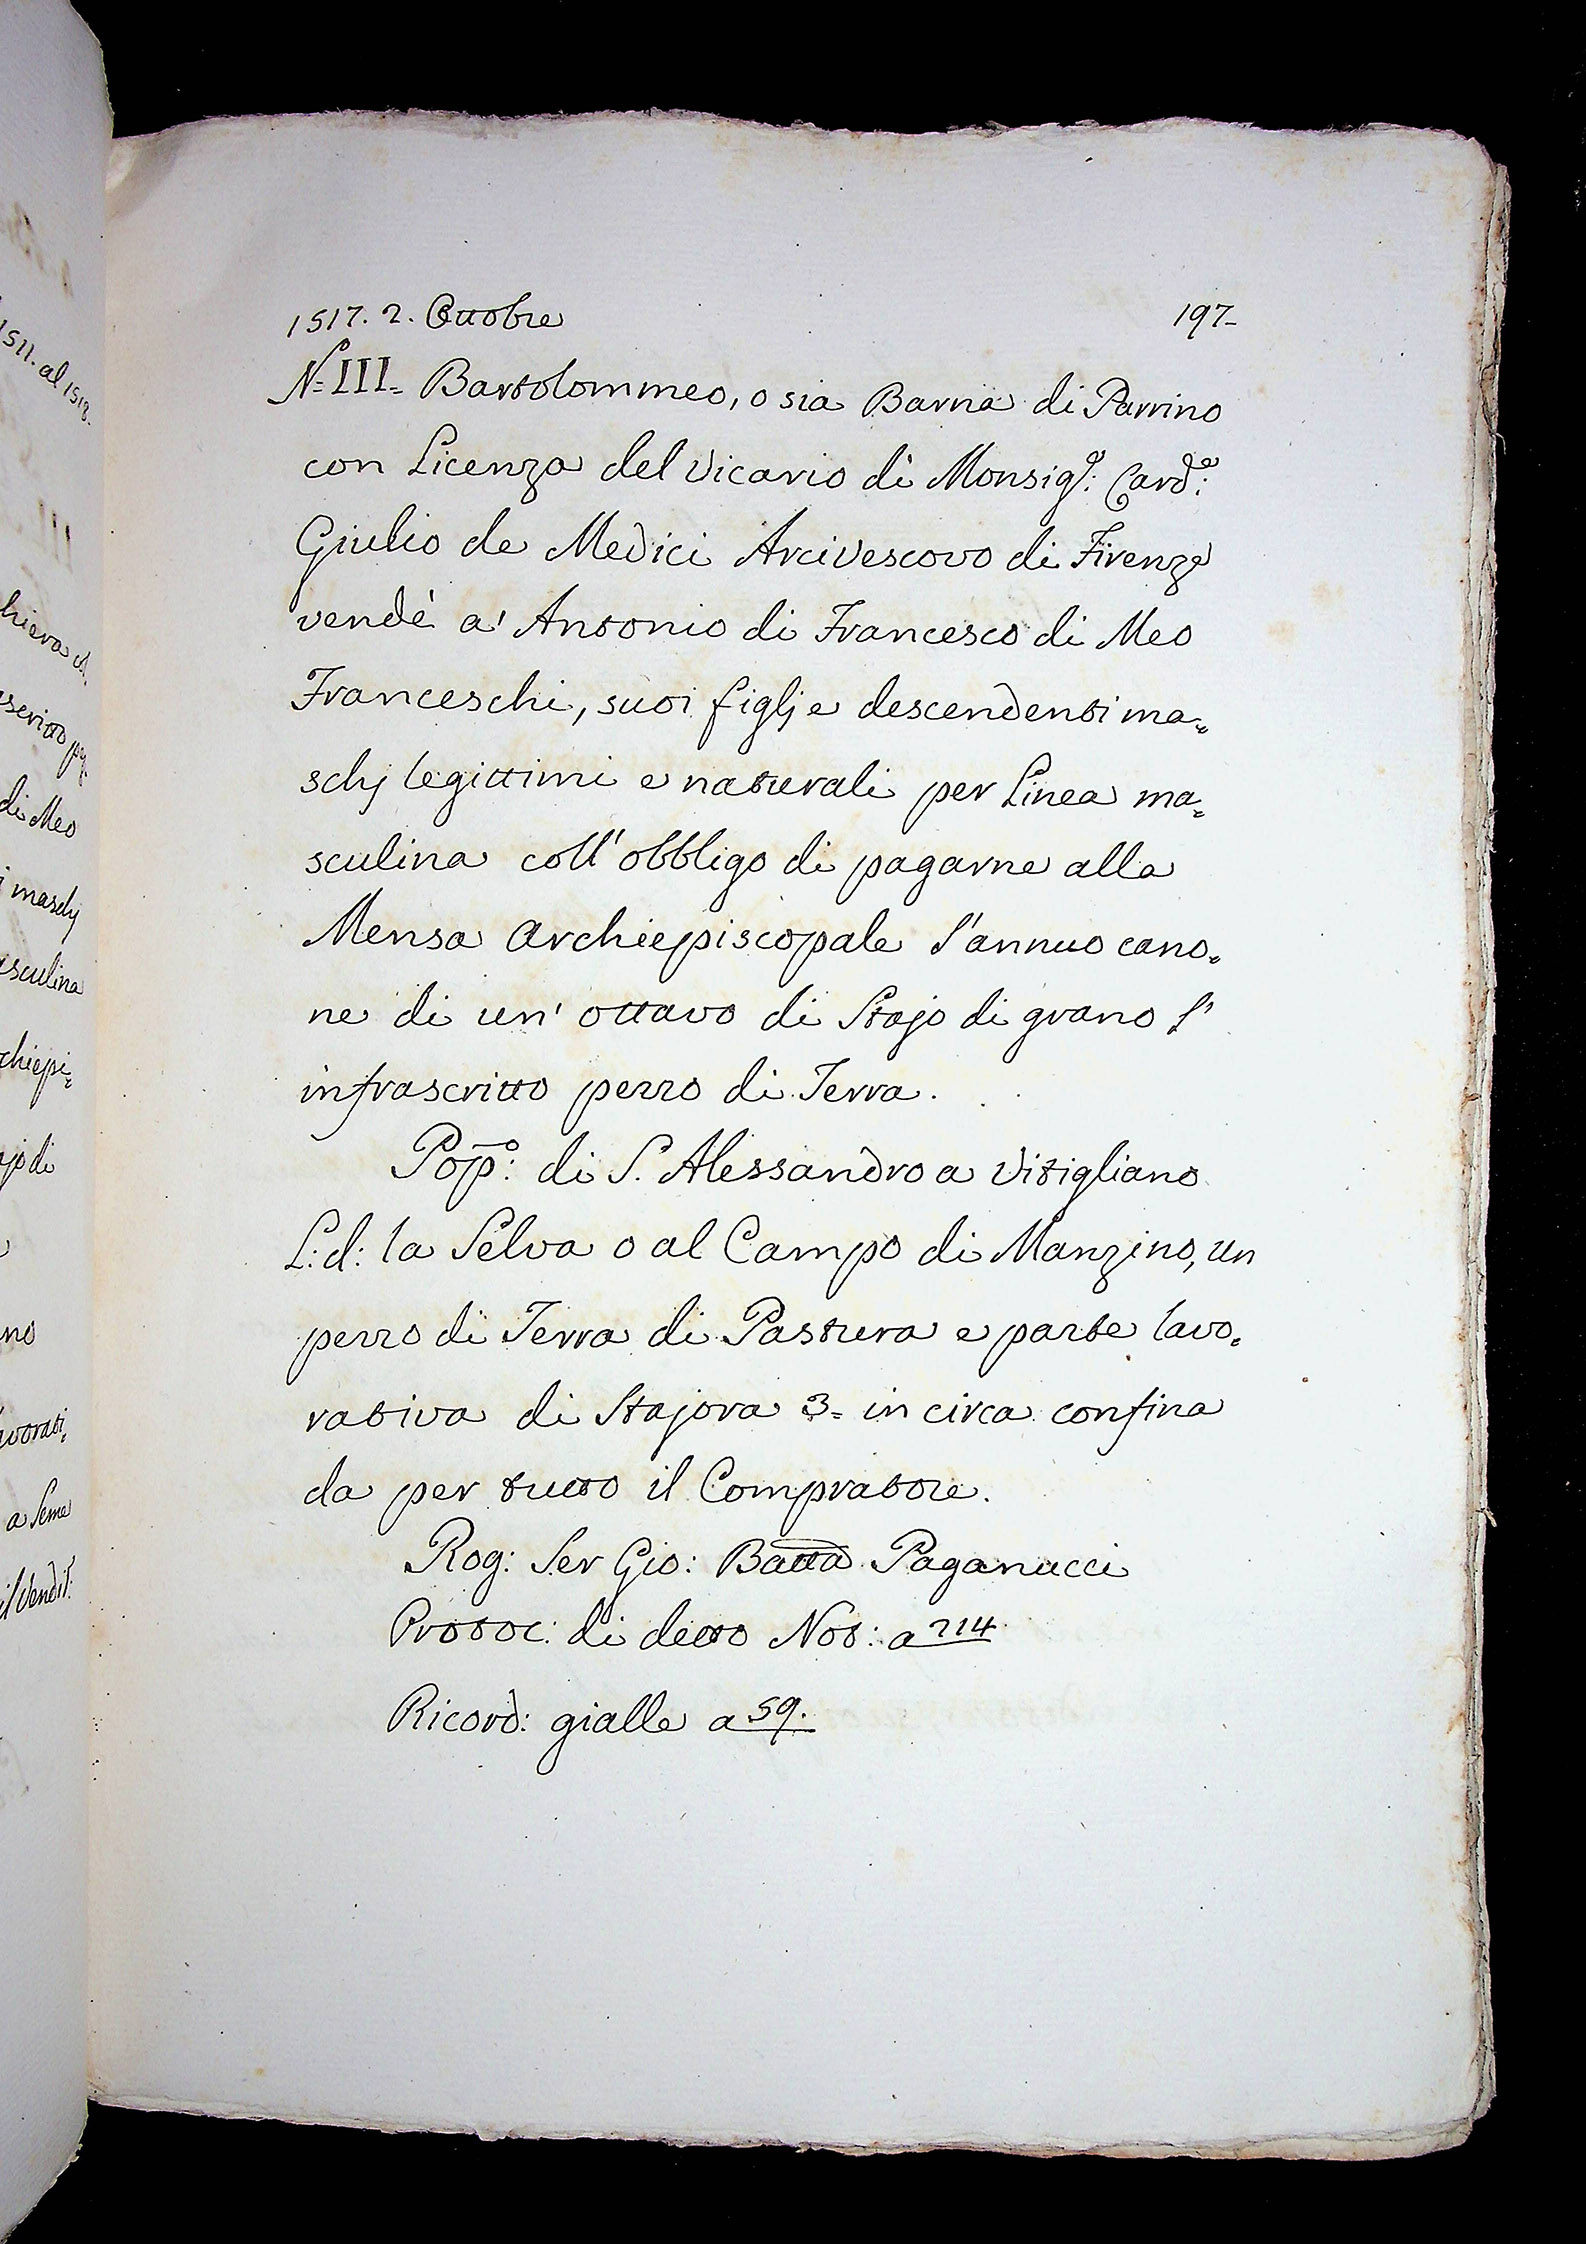 1517. 2. Ottobre 197-
N.º III= Bartolommeo, o sia Barna di Parrino
con Licenza del Vicario di Monsig.e: Card.e:
Giulio de Medici Arcivescovo di Firenze
vendè a' Antonio di Francesco di Meo
Franceschi, suoi figlj e descendenti ma=
schj legittimi e naturali per Linea ma=
sculina coll'obbligo di pagarne alla
Mensa Archiepiscopale l'annuo cano=
ne di un' ottavo di Stajo di grano l'
infrascritto pezzo di Terra.
Pop̄.º: di S. Alessandro a Vitigliano
L: d: la Selva o al Campo di Manzino, un
pezzo di Terra di Pastura e parte lavo=
rativa di Stajora 3= in circa confina
da per tutto il Compratore.
Rog: Ser Gio: Batta Paganucci
Protoc: di detto Not: a 214
Ricord: gialle a 59.
1511. al 1513.
di Meo
maschj
sculina
chiepi=
jo di
no
a Seme
il Vendit: